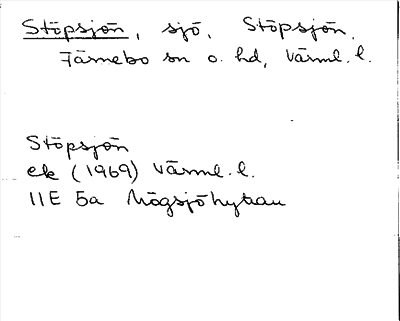 Stöpsjön, sjö. Stöpsjön.
Färnebo sn o. hd, Värml. l.
Stöpsjön
ek (1969) Värml. l.
11E 5a Högsjöhyttan